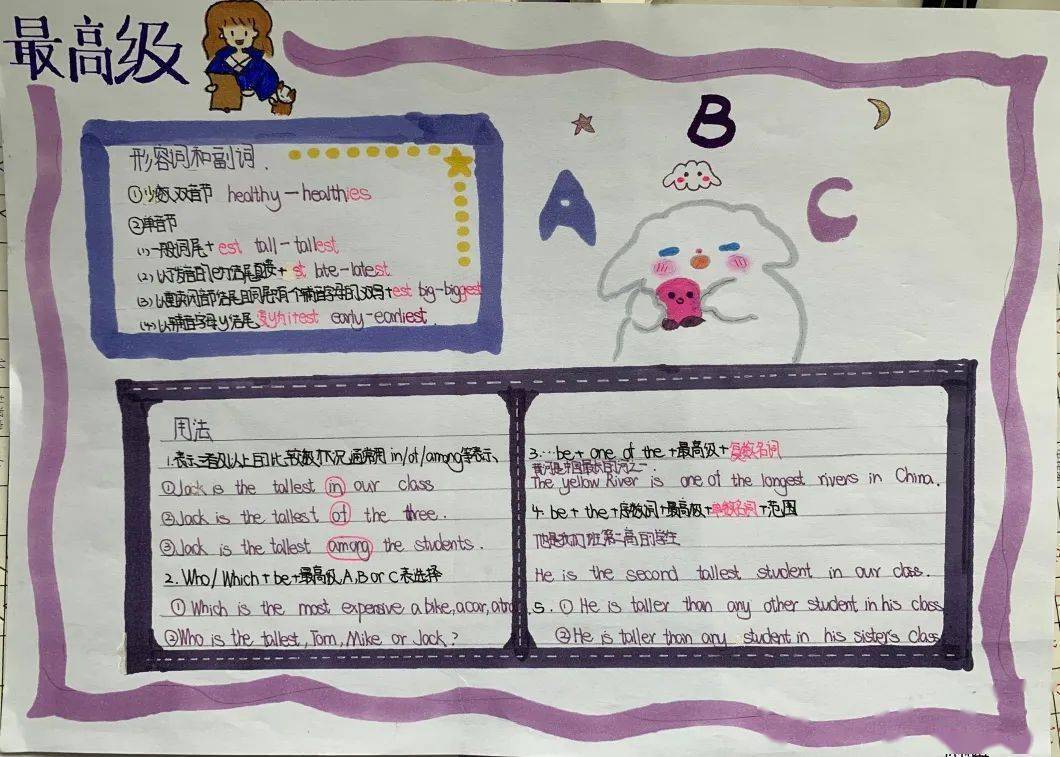 最高级
A
B
C
形容词和副词.
①少数双音节 healthy—healthies
②单音节
(1)一般词尾+est tall-tallest
(2)以不发音的e结尾直接+st late-latest
(3)以重读闭音节结尾且词尾只有一个辅音字母的双写+est big-biggest
(4)以辅音字母y结尾变y为i+est early-earliest
用法
1.表示三者及以上的比较级状况通常用in/of/among等表示、
①Jack is the tallest in our class
②Jack is the tallest of the three.
③Jack is the tallest among the students.
2.Who/Which+be+最高级A,B or C表选择
①Which is the most expensive a bike,a car,a
②Who is the tallest,Tom,Mike or Jack?
3.…be+one of the+最高级+复数名词
黄河是中国最长的河之一.
The yellow River is one of the longest rivers in China.
4.be+the+序数词+最高级+单数名词+范围
他是我们班第二高的学生
He is the second tallest student in our class.
5.①He is taller than any other student in his class
②He is taller than any student in his sister's class